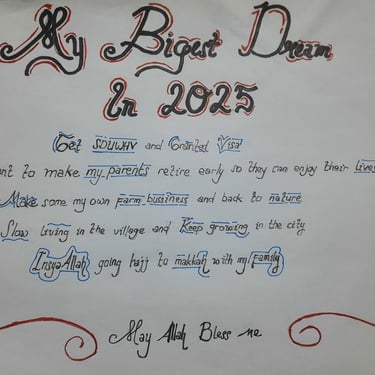 My Bigest Dream
In 2025
Get SDUWHV and Granted Visa
nt to make my parents retire early so they can enjoy their lives
Make some my own farm bussiness and back to nature
Slow living in the village and Keep growing in the city
InsyaAllah going hajj to makkah with my Family
May Allah Bless me